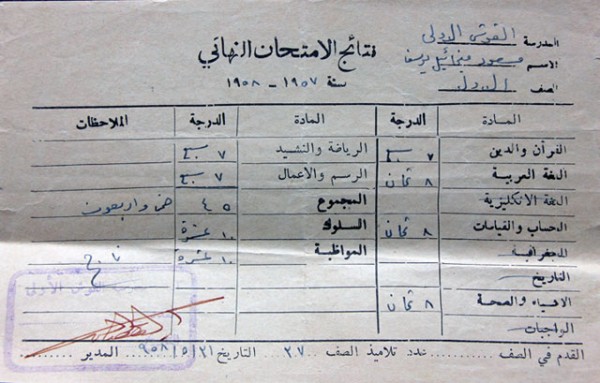 المدرسة القوش الاولى
نتائج الامتحان النهائي
الاسم مسعود ميخائيل يوسف
سنة ١٩٥٧ - ١٩٥٨
الصف الاول
المادة الدرجة المادة الدرجة الملاحظات
القرآن والدين ٧ سبع الرياضة والنشيد ٧ سبع
اللغة العربية ٨ ثمان الرسم والاعمال ٧ سبع
اللغة الانكليزية المجموع ٤٥ خمس واربعون
الحساب والقياسات ٨ ثمان السلوك ١٠ عشرة
الجغرافية المواظبة ١٠ عشرة ناجح
التاريخ
الاشياء والصحة ٨ ثمان
الواجبات
القوش الأولى
القدم في الصف عدد تلاميذ الصف ٢٧ التاريخ ٩٥٨/٥/٢١ المدير